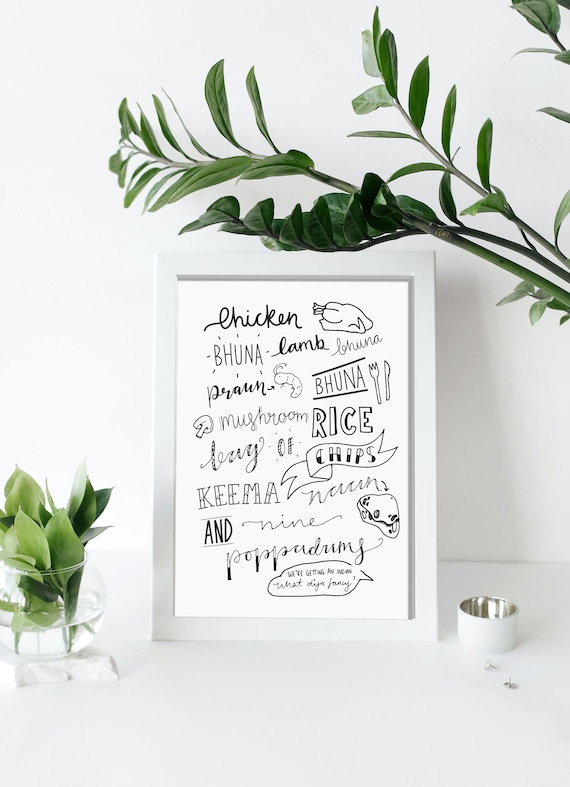 Chicken
BHUNA lamb bhuna
prawn BHUNA
mushroom RICE
bag OF CHIPS
KEEMA naan
AND nine
poppadums
WE'RE GETTING AN INDIAN
what d'ya fancy?